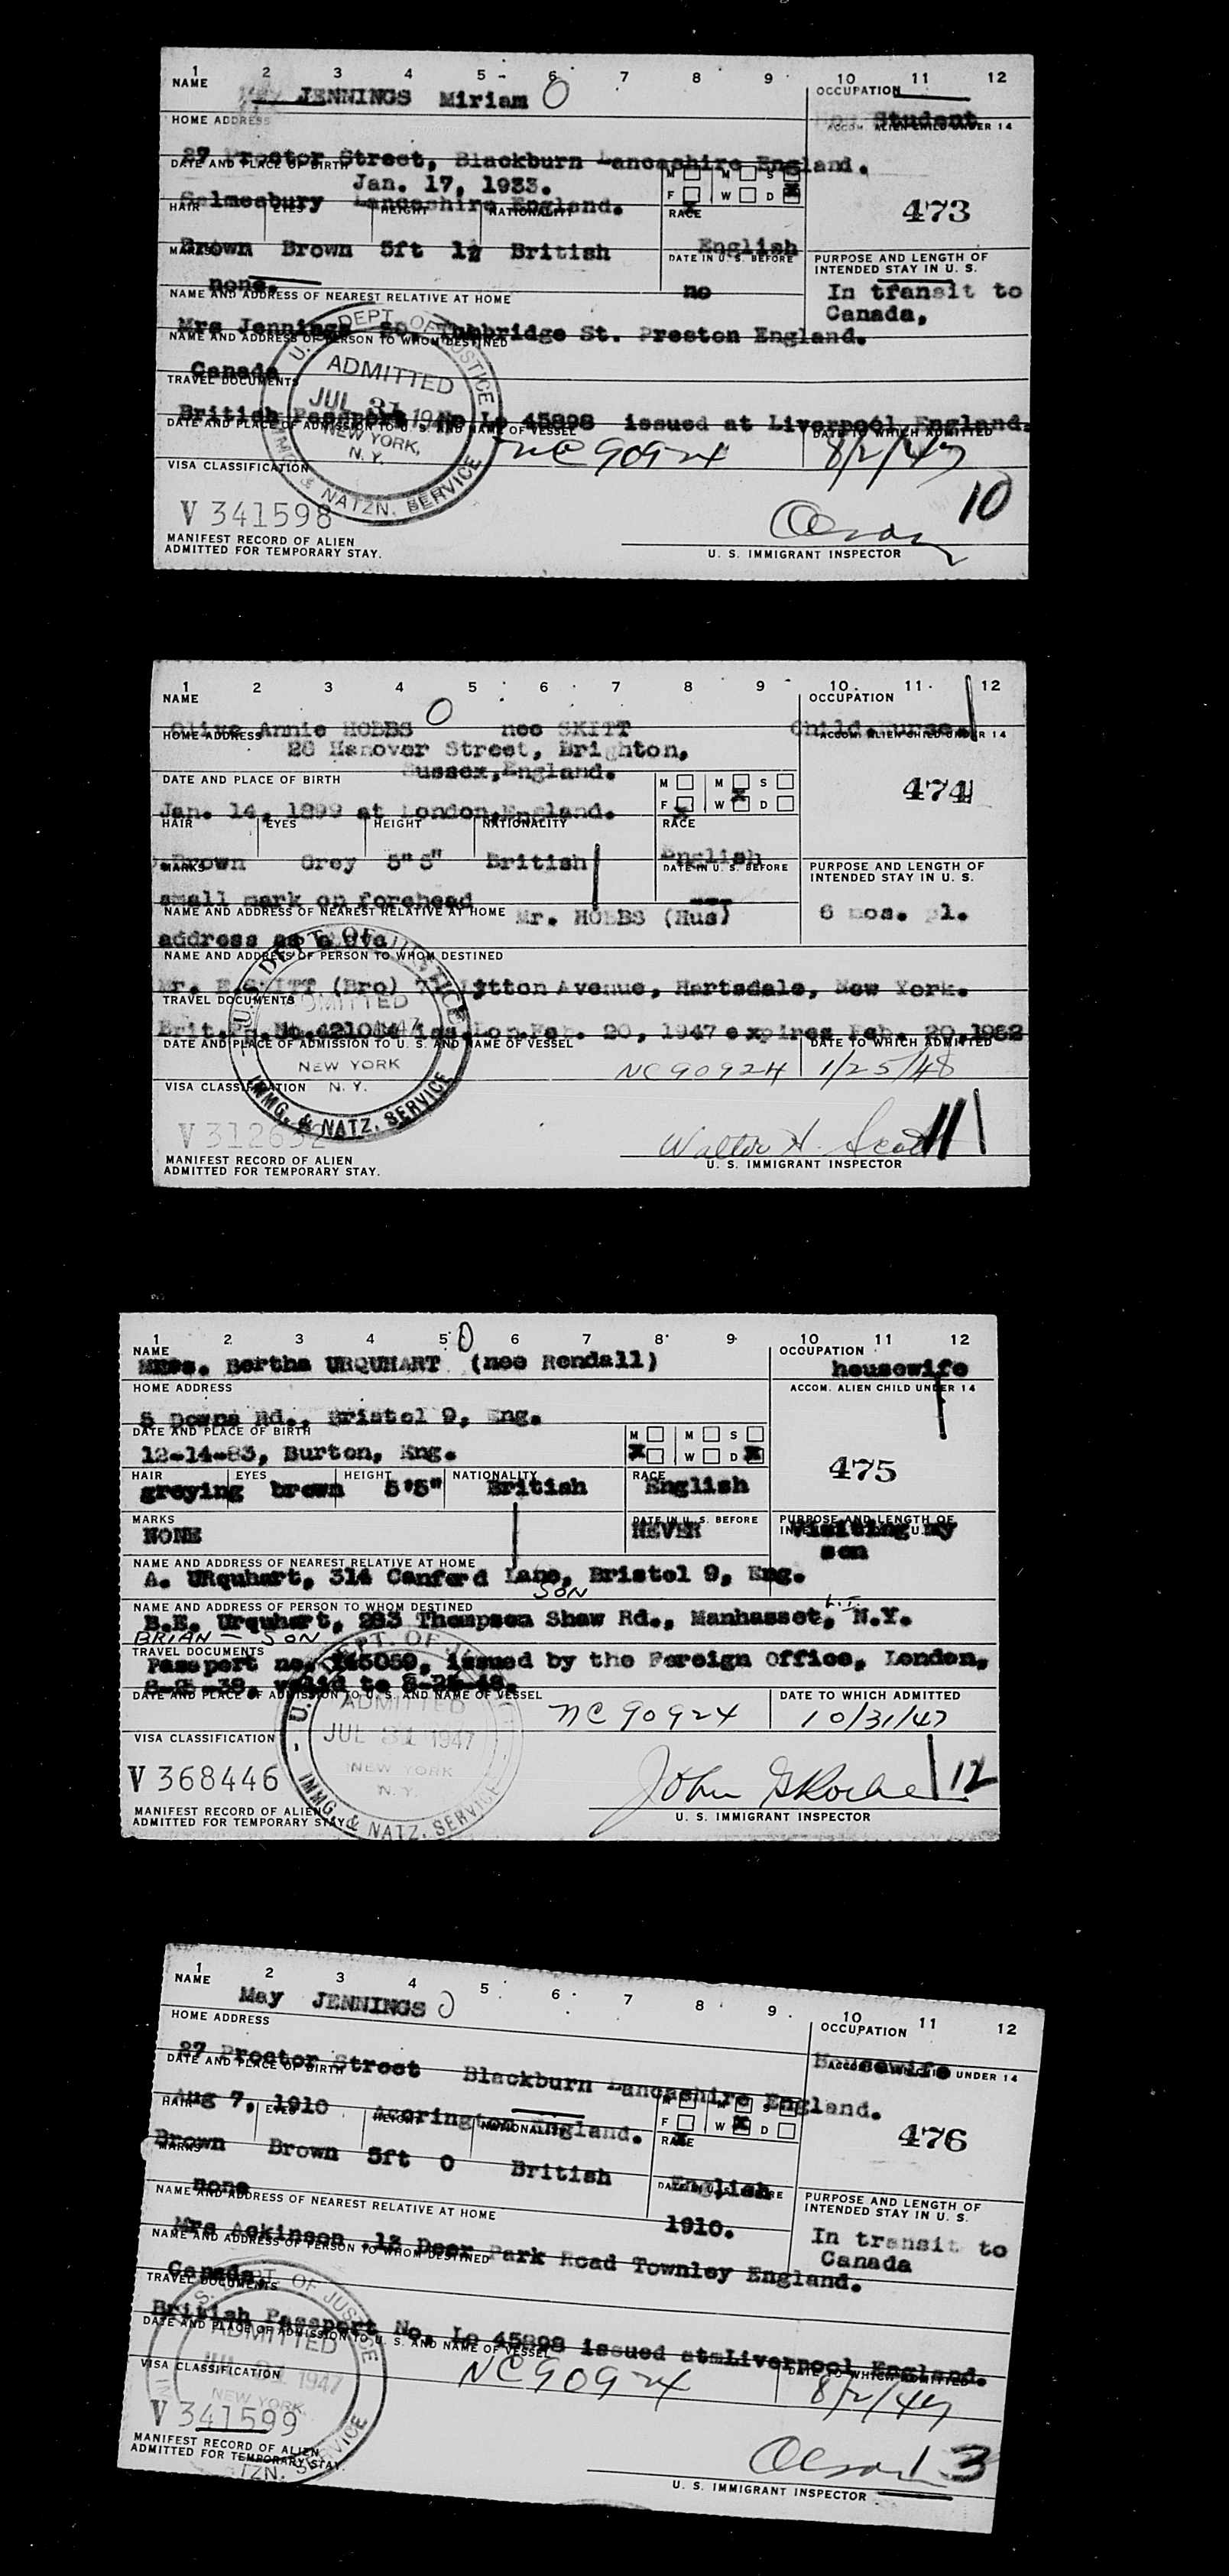 1 2 3 4 5 6 7 8 9 10 11 12
NAME OCCUPATION
JENNINGS Miriam O
HOME ADDRESS Student
ACCOM. ALIEN CHILD UNDER 14
27 Proctor Street, Blackburn Lancashire England.
DATE AND PLACE OF BIRTH
Jan. 17, 1933. M M S
Salmesbury Lancashire England. F X W D X
HAIR EYES HEIGHT NATIONALITY RACE 473
Brown Brown 5ft 1½ British English
MARKS DATE IN U. S. BEFORE PURPOSE AND LENGTH OF INTENDED STAY IN U. S.
none. no In transit to
NAME AND ADDRESS OF NEAREST RELATIVE AT HOME Canada,
Mrs Jennings St. Preston England.
NAME AND ADDRESS OF PERSON TO WHOM DESTINED
Canada
TRAVEL DOCUMENTS
British Passport No Lo 45898 issued at Liverpool England.
DATE AND PLACE OF ADMISSION TO U. S. AND NAME OF VESSEL DATE TO WHICH ADMITTED
NC90924 8/2/47
VISA CLASSIFICATION
U. S. DEPT. OF JUSTICE
ADMITTED
JUL 31 1947
NEW YORK,
N. Y.
IMMG. & NATZN. SERVICE
V 341598 Olson 10
MANIFEST RECORD OF ALIEN
ADMITTED FOR TEMPORARY STAY. U. S. IMMIGRANT INSPECTOR
1 2 3 4 5 6 7 8 9 10 11 12
NAME OCCUPATION
Olive Annie HOBBS nee SKITT Child Nurse.
HOME ADDRESS ACCOM. ALIEN CHILD UNDER 14
28 Hanover Street, Brighton,
Sussex, England.
DATE AND PLACE OF BIRTH M M S
Jan. 14, 1899 at London, England. F X W X D 474
HAIR EYES HEIGHT NATIONALITY RACE
Brown Grey 5" 5" British English
MARKS DATE IN U. S. BEFORE PURPOSE AND LENGTH OF INTENDED STAY IN U. S.
small mark on forehead
NAME AND ADDRESS OF NEAREST RELATIVE AT HOME Mr. HOBBS (Hus) 6 mos. pl.
address as
NAME AND ADDRESS OF PERSON TO WHOM DESTINED
Mr. SKITT (Bro) Lytton Avenue, Hartsdale, New York.
TRAVEL DOCUMENTS
Brit. No. iss. Feb. 20, 1947 expires Feb. 20, 1952
DATE AND PLACE OF ADMISSION TO U. S. AND NAME OF VESSEL DATE TO WHICH ADMITTED
NC90924 1/25/48
VISA CLASSIFICATION
U. S. DEPT. OF JUSTICE
ADMITTED
NEW YORK
N. Y.
IMMG. & NATZ. SERVICE
V 312632 Walter H. Scott 11
MANIFEST RECORD OF ALIEN
ADMITTED FOR TEMPORARY STAY. U. S. IMMIGRANT INSPECTOR
1 2 3 4 5 O 6 7 8 9 10 11 12
NAME OCCUPATION
Bertha URQUHART (nee Rendall) housewife
HOME ADDRESS ACCOM. ALIEN CHILD UNDER 14
Downs Rd., Bristol 9, Eng.
DATE AND PLACE OF BIRTH M M S
12-14-83, Burton, Eng. X W D X
475
HAIR EYES HEIGHT NATIONALITY RACE
greying brown 5'5" British English
MARKS DATE IN U. S. BEFORE PURPOSE AND LENGTH OF
NONE NEVER Visiting my
son
NAME AND ADDRESS OF NEAREST RELATIVE AT HOME
A. URquhart, 314 Canford Lane, Bristol 9, Eng.
SON
NAME AND ADDRESS OF PERSON TO WHOM DESTINED L.I.
B.E. Urquhart, 283 Thompson Shaw Rd., Manhasset, N.Y.
BRIAN SON
TRAVEL DOCUMENTS
Passport no. issued by the Foreign Office, London,
valid to
DATE AND PLACE OF ADMISSION TO U. S. AND NAME OF VESSEL DATE TO WHICH ADMITTED
NC90924 10/31/47
VISA CLASSIFICATION
U. S. DEPT. OF JUSTICE
ADMITTED
JUL 31 1947
NEW YORK
N. Y.
IMMG. & NATZ. SERVICE
V 368446 John 12
MANIFEST RECORD OF ALIEN
ADMITTED FOR TEMPORARY STAY. U. S. IMMIGRANT INSPECTOR
1 2 3 4 5 6 7 8 9 10 11 12
NAME OCCUPATION
May JENNINGS O
HOME ADDRESS Housewife
ACCOM. UNDER 14
27 Proctor Street Blackburn Lancashire England.
DATE AND PLACE OF BIRTH M M S
Aug 7, 1910 Accrington England. F X W X D 476
HAIR EYES HEIGHT NATIONALITY RACE
Brown Brown 5ft 0 British English
MARKS DATE IN U. S. BEFORE PURPOSE AND LENGTH OF INTENDED STAY IN U. S.
none 1910. In transit to
NAME AND ADDRESS OF NEAREST RELATIVE AT HOME Canada
Mrs Ackinson 13 Deer Park Road Townley England.
NAME AND ADDRESS OF PERSON TO WHOM DESTINED
Canada.
TRAVEL DOCUMENTS
British Passport No. Lo 45898 issued at Liverpool England.
DATE AND PLACE OF ADMISSION TO U. S. AND NAME OF VESSEL
NC90924 8/2/47
VISA CLASSIFICATION
S. DEPT. OF JUSTICE
ADMITTED
JUL 31 1947
NEW YORK
NATZN. SERVICE
V 341599 Olson 13
MANIFEST RECORD OF ALIEN
ADMITTED FOR TEMPORARY STAY. U. S. IMMIGRANT INSPECTOR